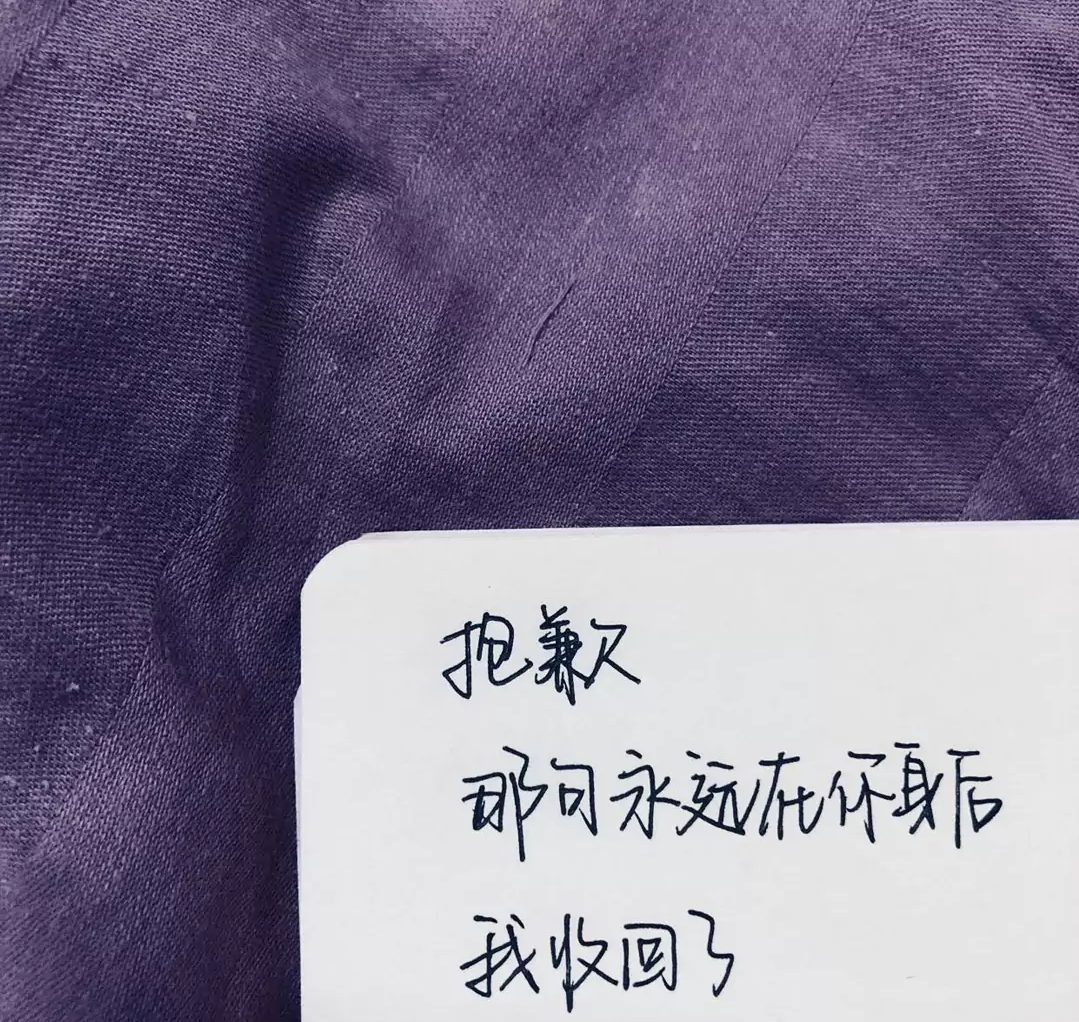 抱歉
那句永远在你身后
我收回了